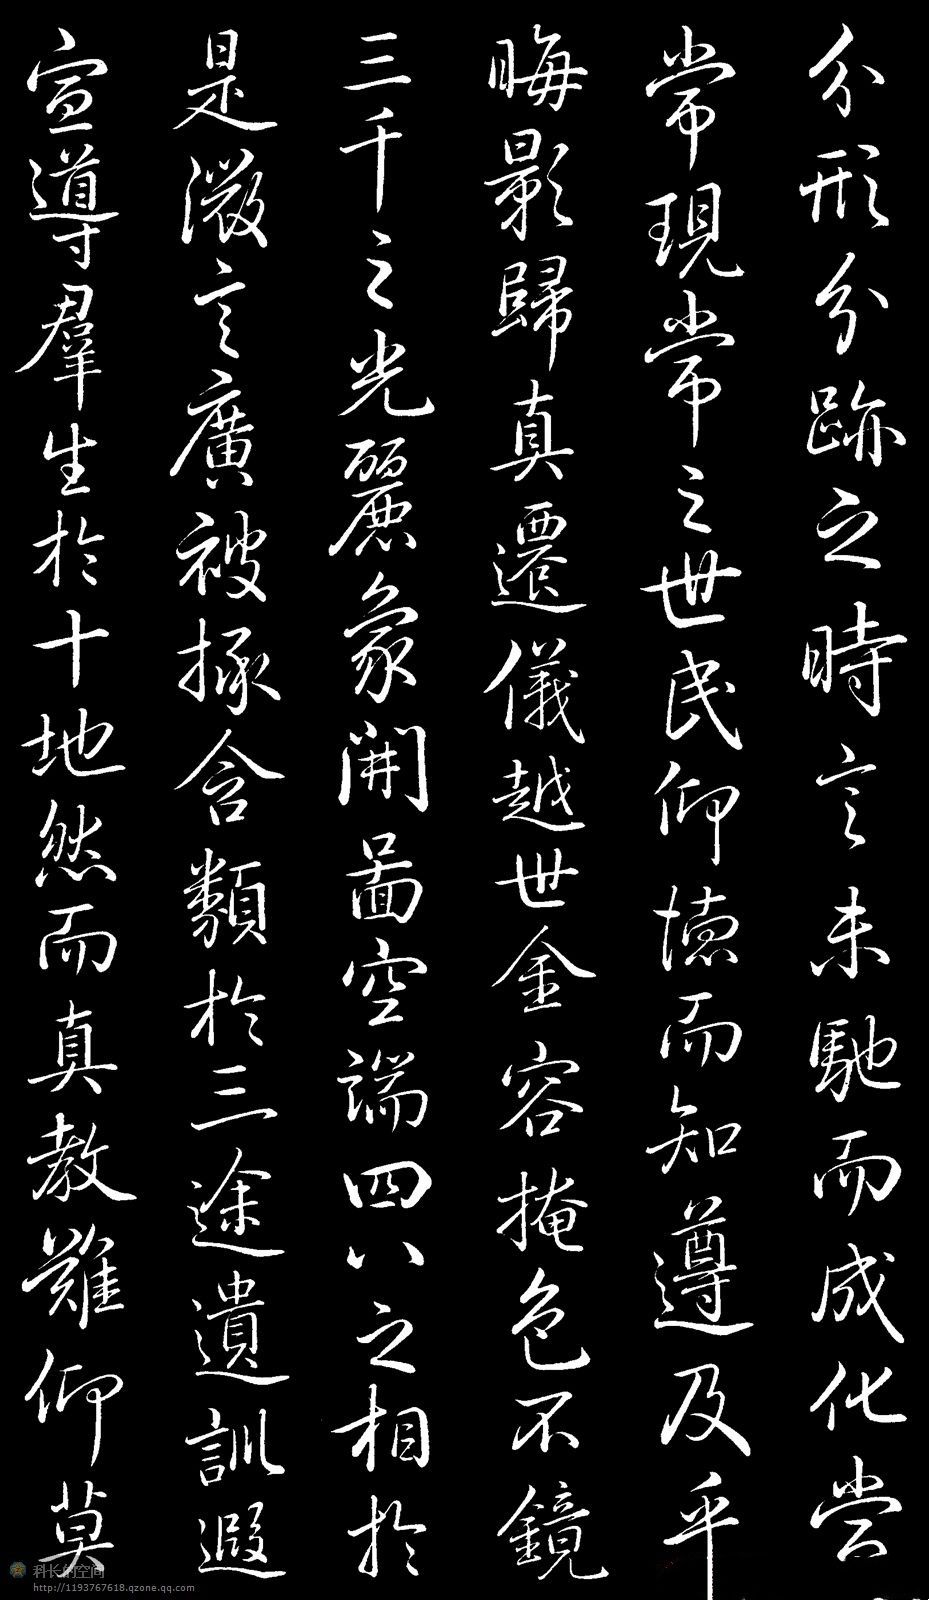 分形分跡之時言未馳而成化當
常現常之世民仰德而知遵及乎
晦影歸真遷儀越世金容掩色不鏡
三千之光麗象開圖空端四八之相於
是微言廣被拯含類於三途遺訓遐
宣導羣生於十地然而真教難仰莫
科长的空间
http://1193767618.qzone.qq.com